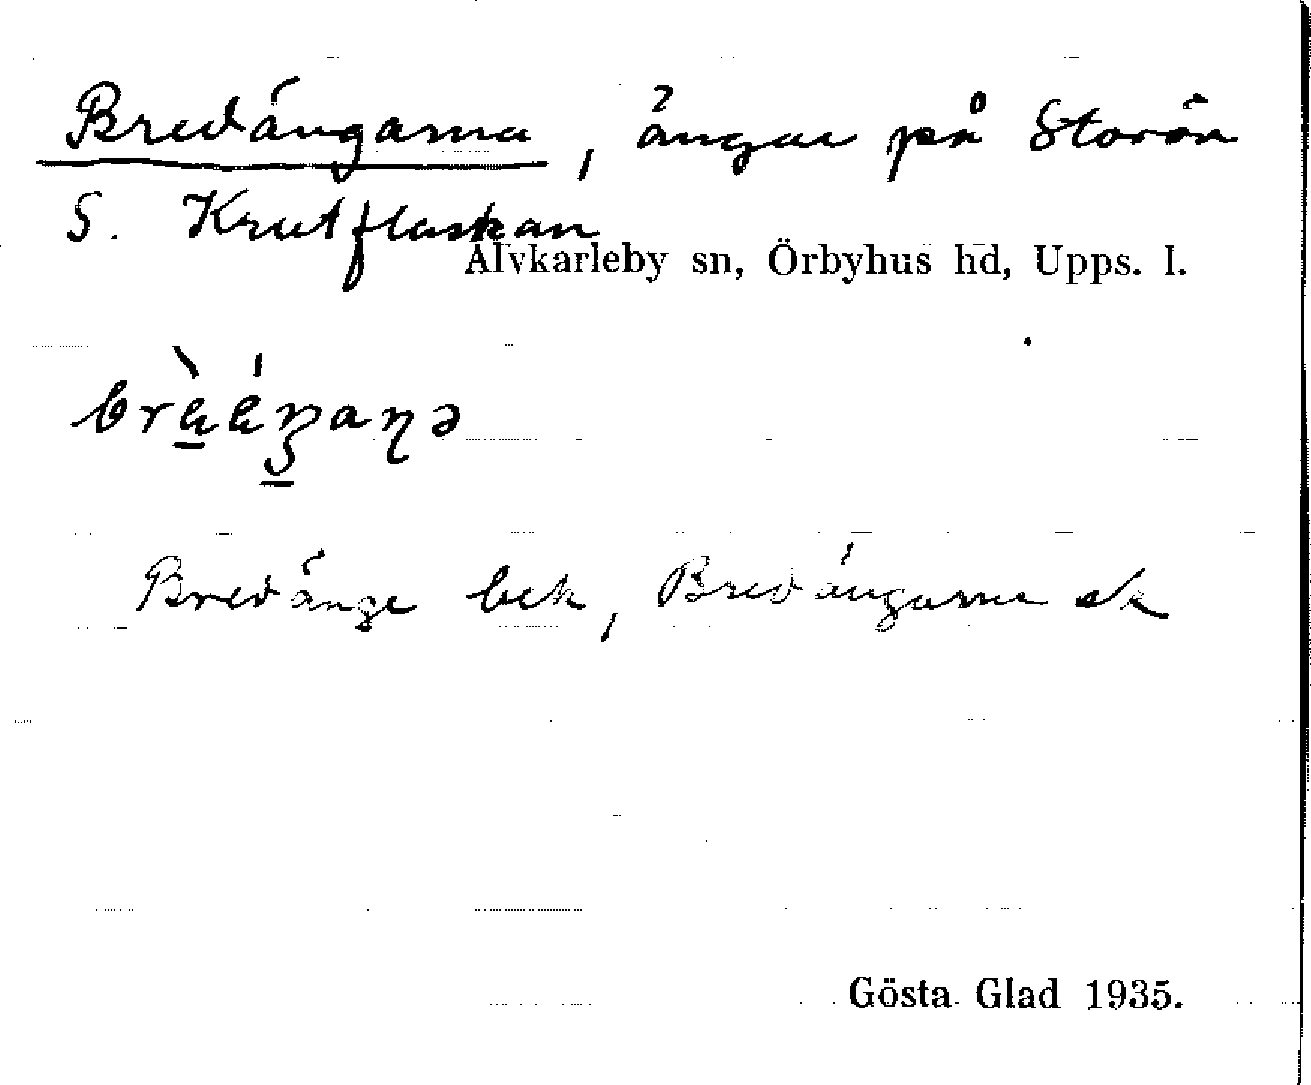 Bredängarna, ängar på Storön
S. Krutflaskan
Älvkarleby sn, Örbyhus hd, Upps. l.
Bredänge bek, Bredängarna ek
Gösta Glad 1935.